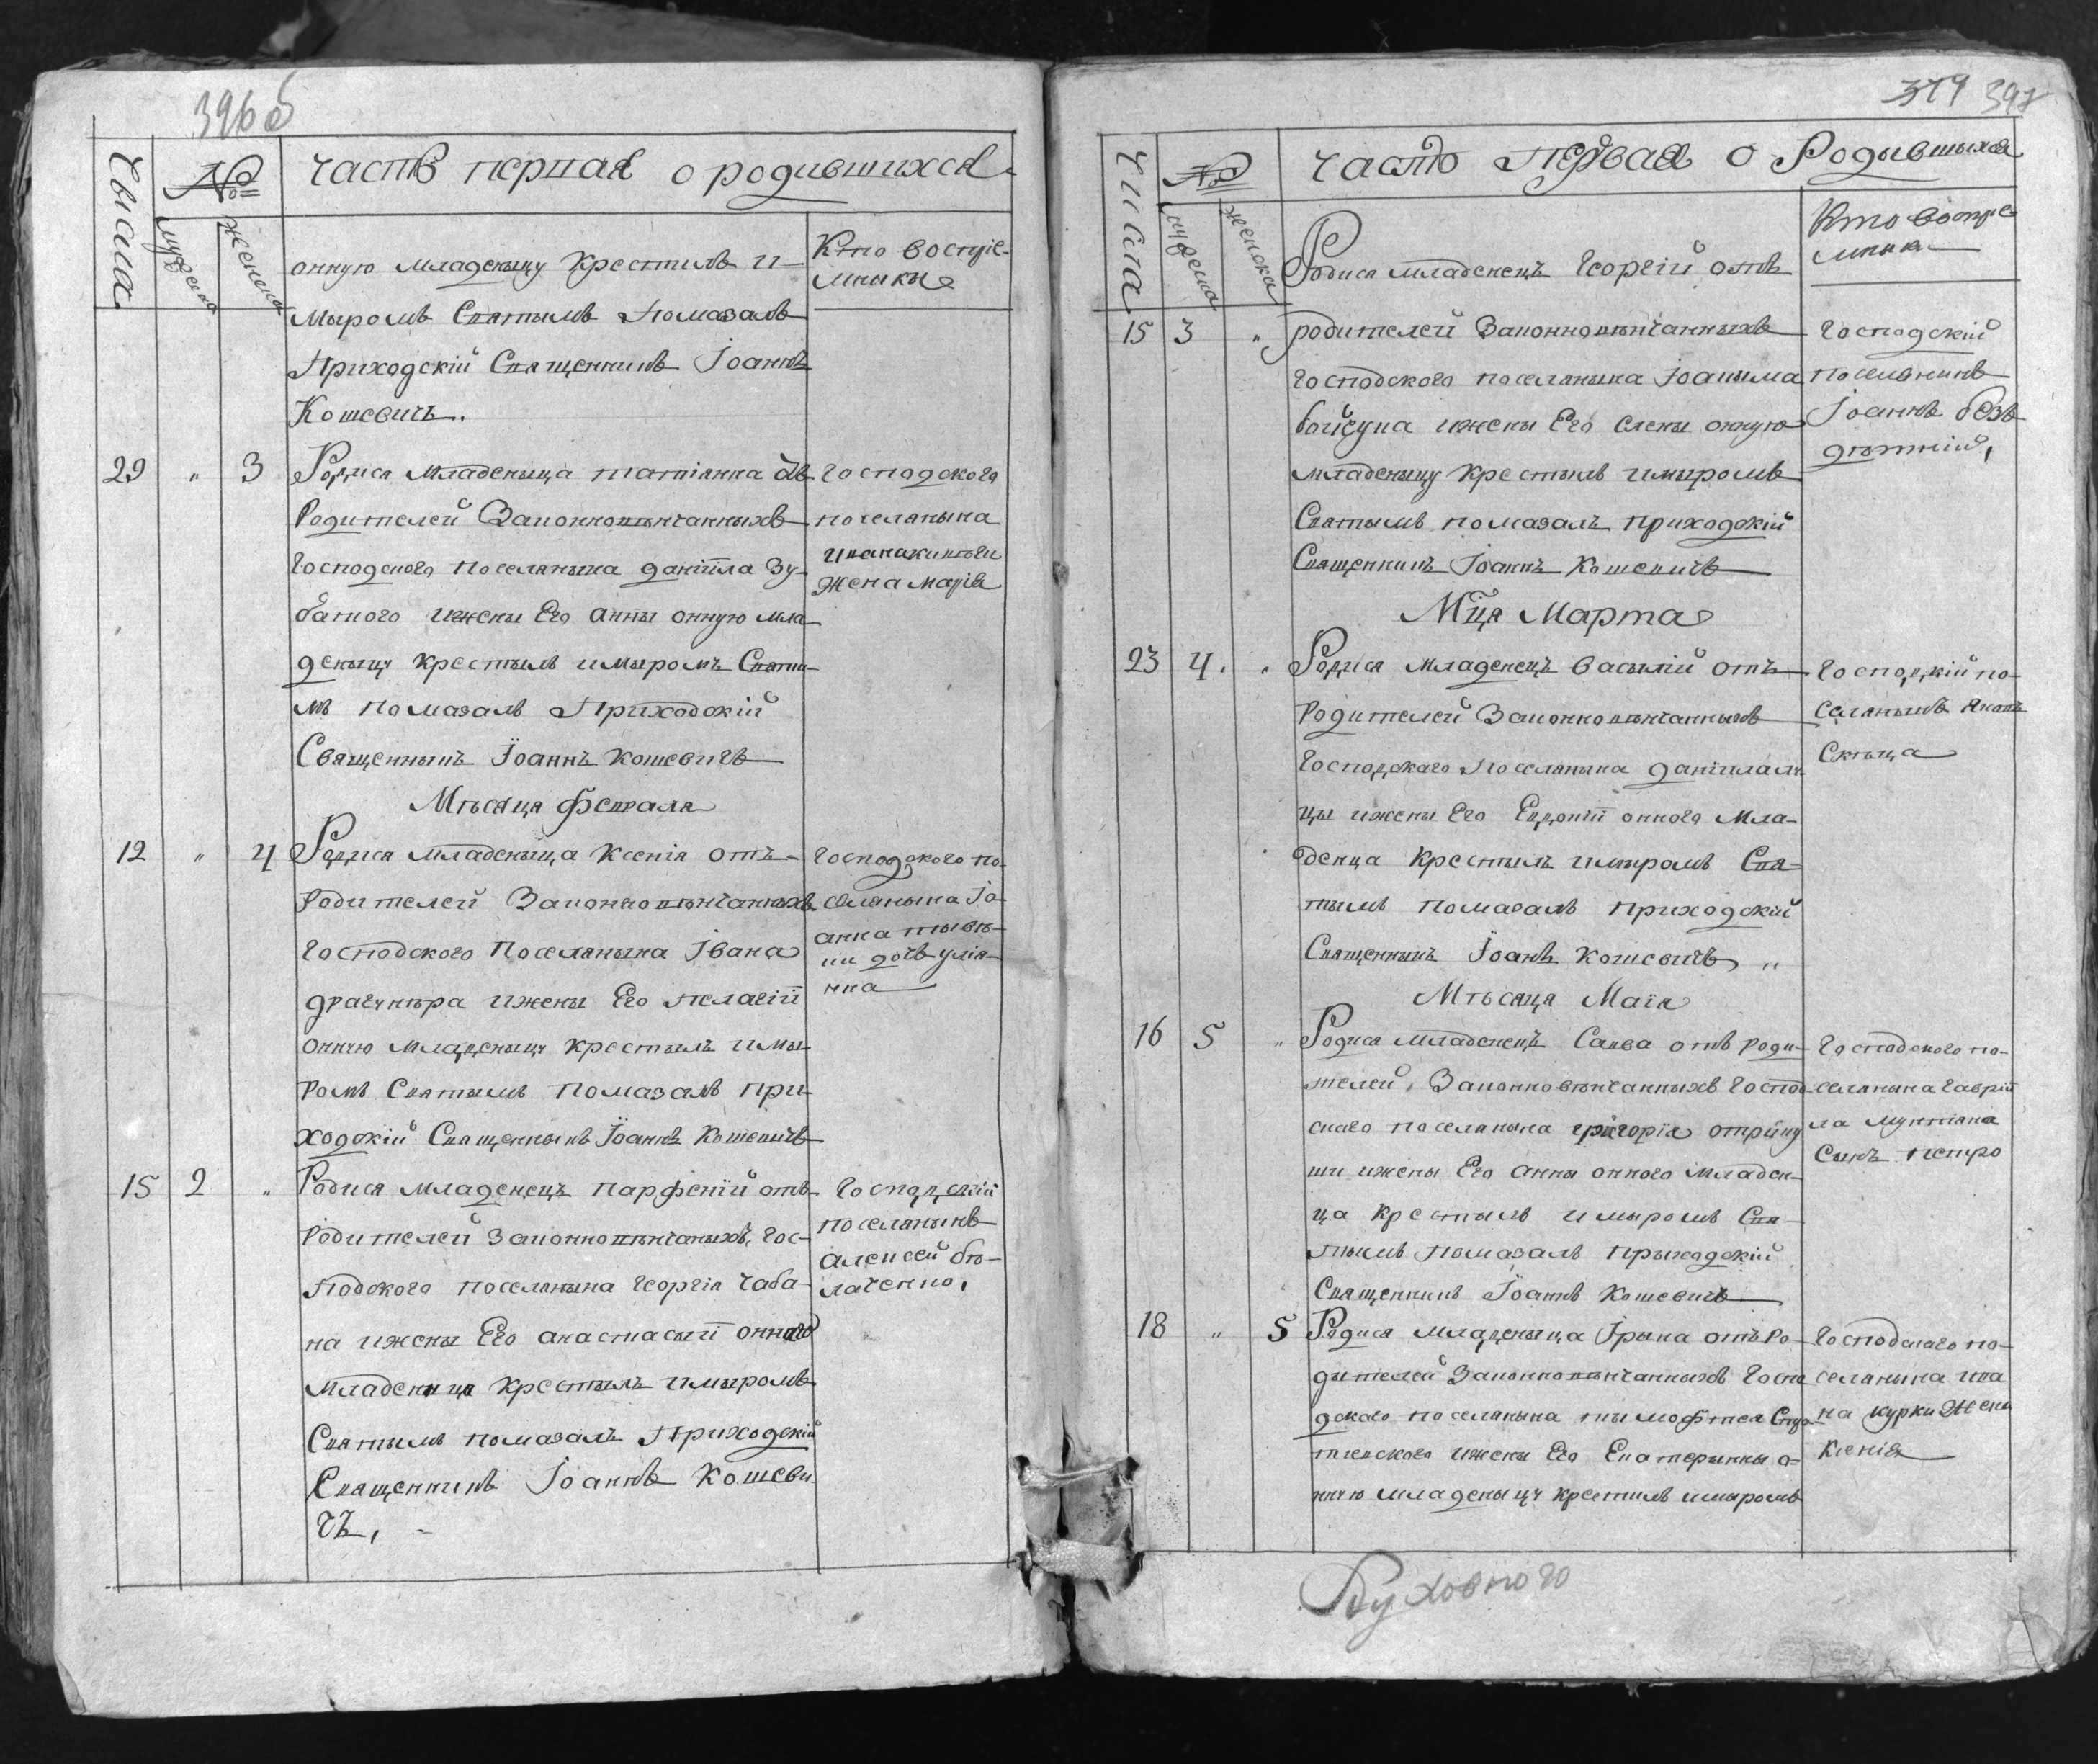 396 об
Чысла
№
часть первая о родившихся
мужеска
женска
Кто воспріе-
мники
онную младеныцу крестилъ и
мыромъ Святымъ помазалъ
Приходскій Священникъ Іоаннъ
Кошевичъ.
29 " 3
Родися младеныца татіанна отъ
родителей Законновѣнчанныхъ
господского поселаныка даніила Зу-
батого ижены Его анны онную мла
деныцу крестылъ имыромъ Святы
мъ помазалъ Приходскій
Священныкъ Іоаннъ Кошевичъ
господского
поселаныка
жена марія
Мѣсяца феврала
12 " 4
Родися младеныца Ксенія отъ
родителей Законновѣнчанныхъ
господского поселаныка Івана
ижены Его пелагіи
онную младеныцу крестылъ имы
ромъ Святымъ помазалъ при
ходскій Священныкъ Іоаннъ Кошевичъ
господского по-
селаныка Іо-
анна
дочъ уліа-
нна
15 2 "
Родися младенецъ парфеній отъ
родителей законновѣнчаныхъ гос-
подского поселаныка георгія чаба-
на ижены Его анастасыи онного
младенца крестылъ имыромъ
Святымъ помазалъ Приходскій
Священникъ Іоаннъ Кошеви
чъ,
господскій
поселаныкъ
алексей бѣ-
лаченко,
379 397
Числа
№
часть первая о Родывшыхся
мужеска
женска
Кто воспріе
мники
15 3 "
Родися младенецъ Георгій отъ
родителей Законновѣнчанныхъ
господского поселаныка Іоакыма
ижены Его елены онную
младеныцу крестылъ имыромъ
Святымъ помазалъ приходскій
Священникъ Іоаннъ Кошевичъ
Господскій
поселянинъ
Іоаннъ безъ
Мца Марта
23 4. "
Родися младенецъ василій отъ
родителей Законновѣнчанныхъ
господского поселаныка
цы ижены Его Евдокіи онного мла-
денца крестылъ имыромъ Свя-
тымъ помазалъ приходскій
Священныкъ Іоанъ Кошевичъ "
господскій по-
селаныкъ Яковъ
Мѣсяца Маія
16 5 "
Родися младенецъ Савва отъ роди-
телей, Законновѣнчанныхъ Господ
ского поселаныка григорія
ижены Его анны онного младен-
ца крестылъ имыромъ Свя-
тымъ помазалъ прыходскій
Священникъ Іоаннъ Кошевичъ
Господского по-
селаныка гаврии
ла мунтіана
Сынъ петро
18 " 5
Родися младеныца Ірына отъ ро-
дителей Законновѣнчанныхъ Госпо
дского поселаныка тымофтея
ижены Его Екатерынны о-
нную младеныцу крестилъ имыромъ
Господского по-
селаныка ива
на курки жена
ксенія
Духовного